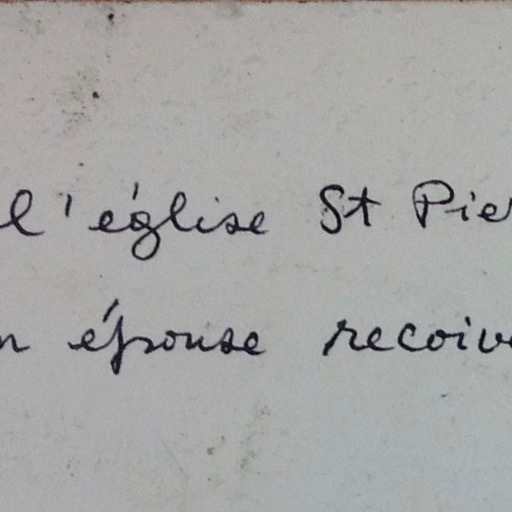 l'église St Pier
n épouse recoive